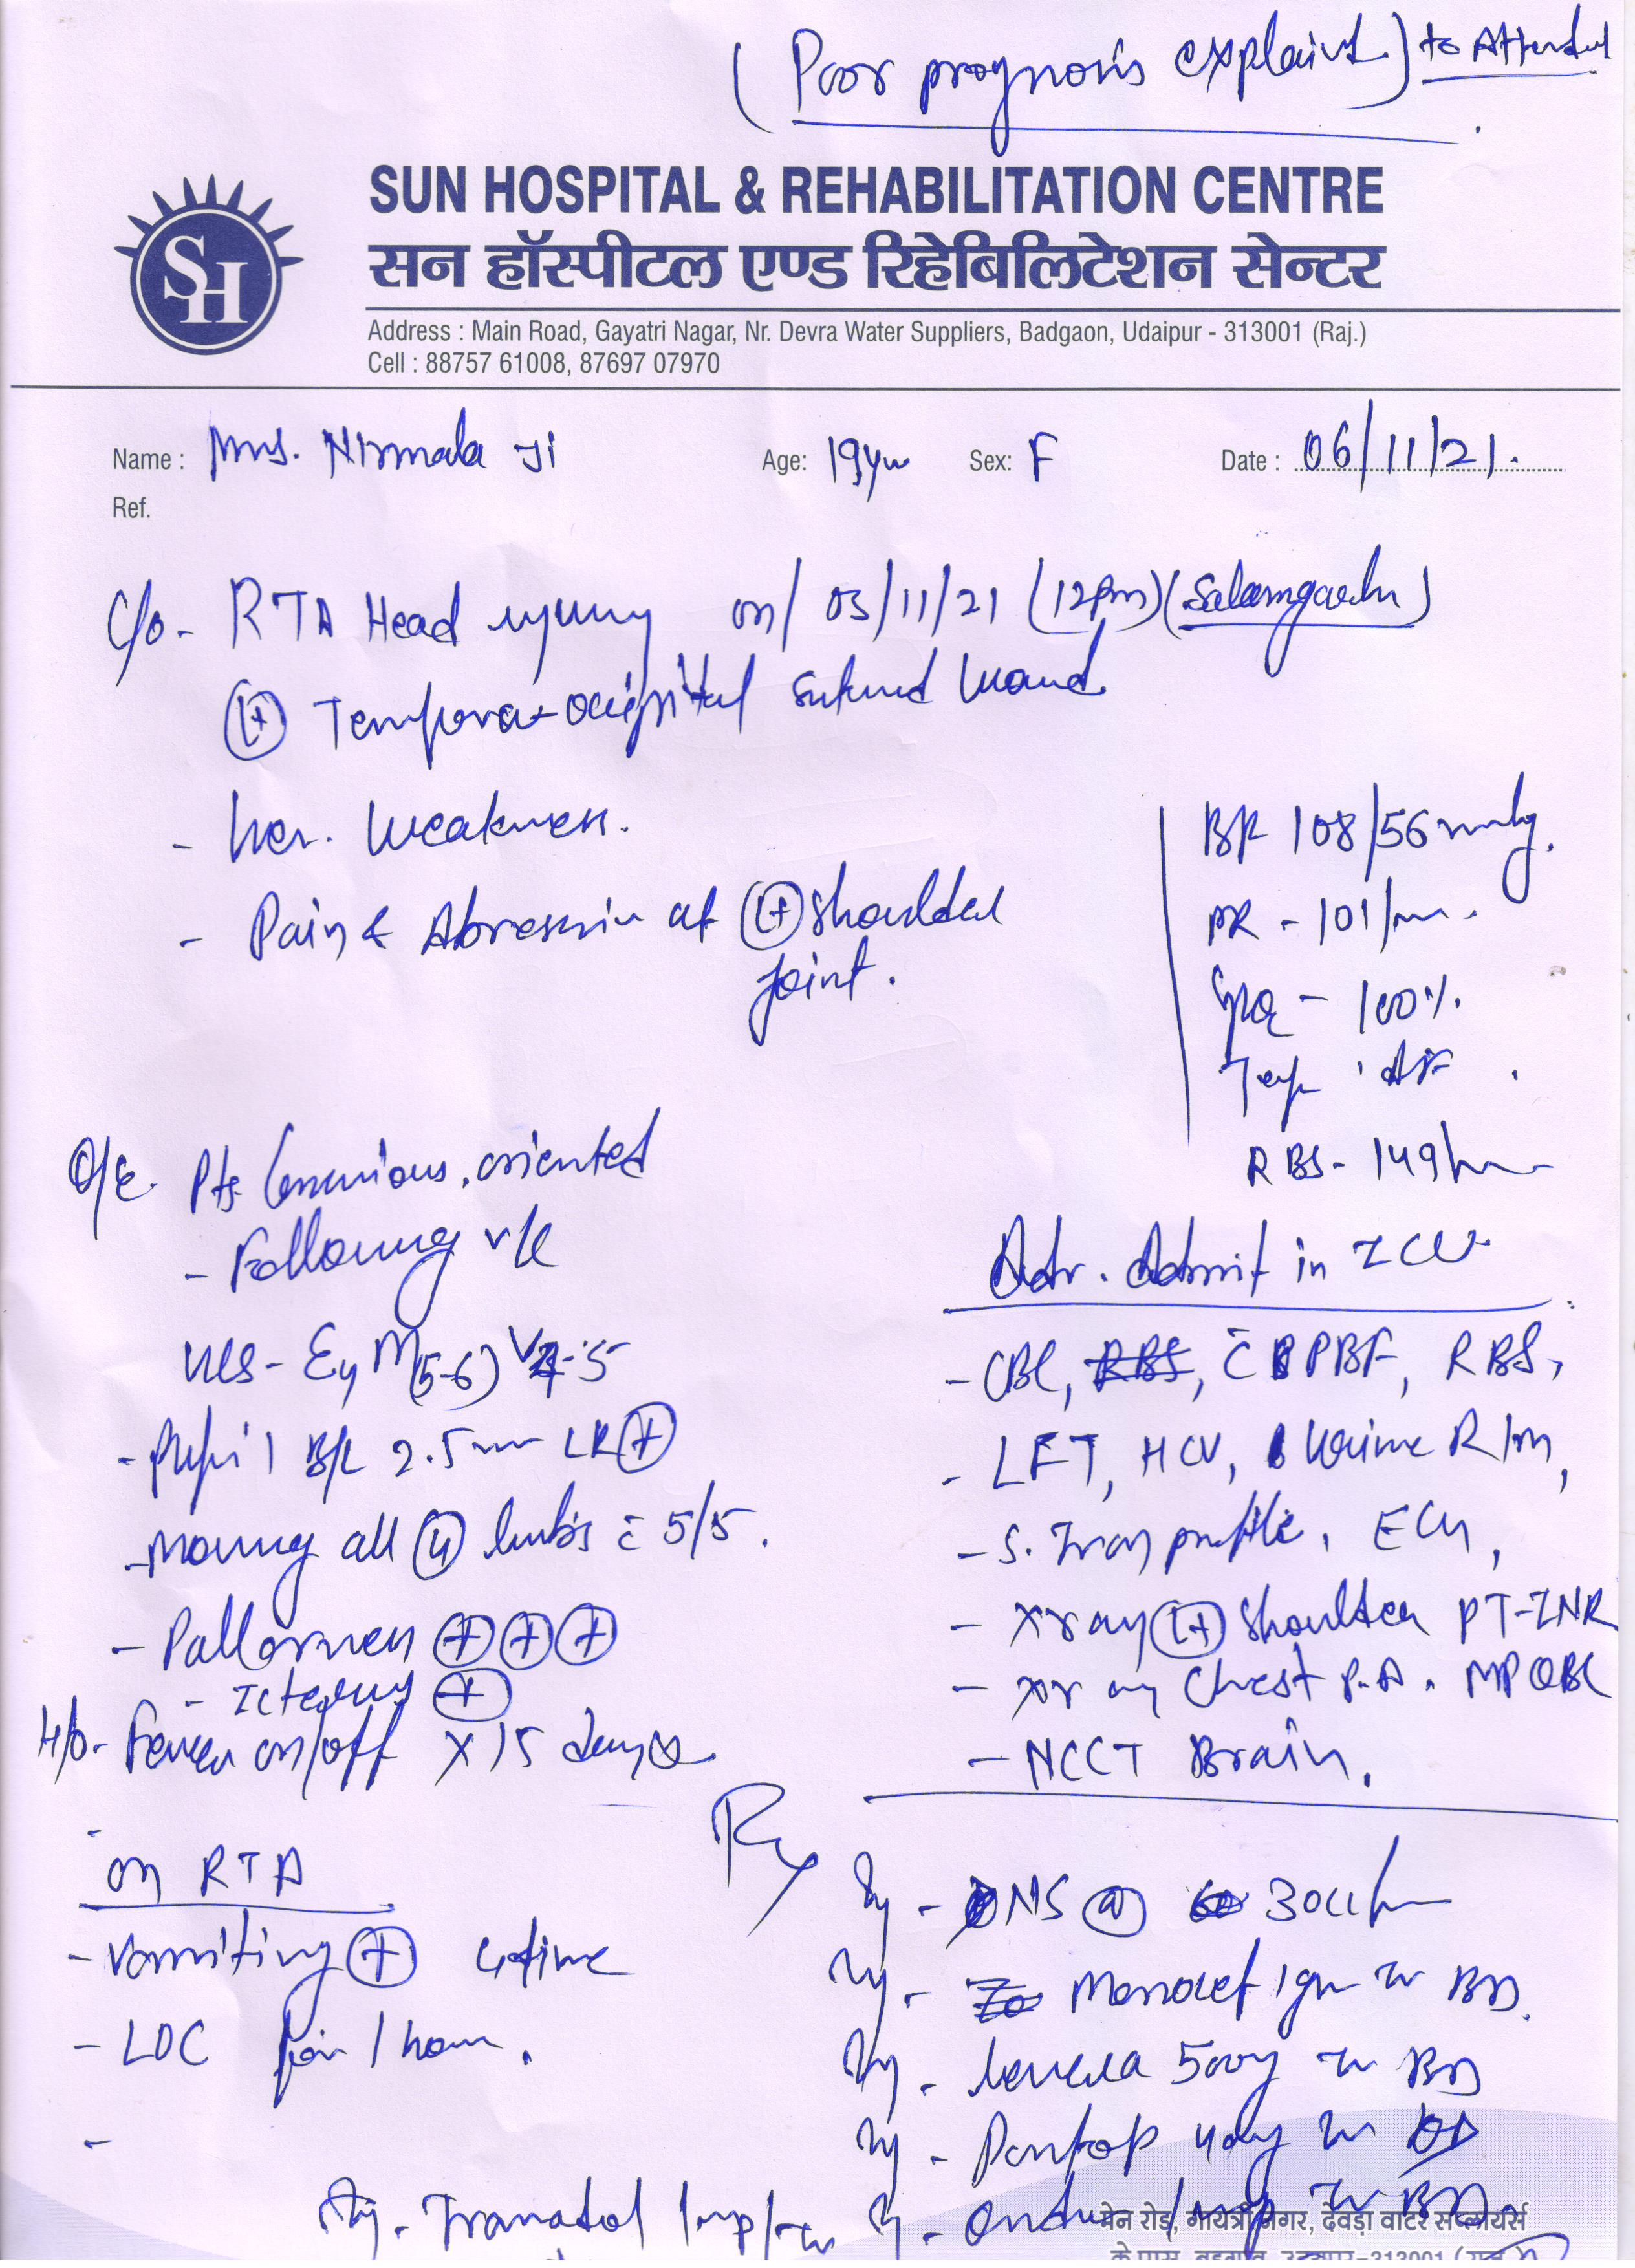 (Poor prognosis explaind) to Attendend
SUN HOSPITAL & REHABILITATION CENTRE
सन हॉस्पीटल एण्ड रिहेबिलिटेशन सेन्टर
SH
Address : Main Road, Gayatri Nagar, Nr. Devra Water Suppliers, Badgaon, Udaipur - 313001 (Raj.)
Cell : 88757 61008, 87697 07970
Name : Mrs. Nirmala Ji Age: 19yrs Sex: F Date : 06/11/21.
Ref.
C/o - RTA Head injury on/ 03/11/21 (12pm) (Salamgarh)
Lt Temporo-occipital sutured wound
- Gen. Weakness.
- Pain & Abrasion at Lt shoulder
joint.
BP 108/56 mmhg.
PR - 101/m.
SpO2 - 100%.
Temp : AF
RBS - 149
O/E Pts Conscious, oriented
- Following v/c
GCS - E4 M(5-6) V4-5
- Pupil B/L 2.5mm LR +
- Moving all 4 limbs c̄ 5/5.
- Pallorness + + +
- Icterus +
H/O - Fever on/off X 15 days
Adv. Admit in ICU
- CBC, RBS, c̄ PBF, RBS,
- LFT, HCV, Urine R/m,
- S. Iron profile, ECG,
- Xray Lt shoulder PT-INR
- Xray Chest P.A. MPQBC
- NCCT Brain.
on RTA
- Vomiting + 4 time
- LOC for 1 hour.
-
Rx
Inj - NS @ 30cc/hr
Inj - Monocef 1gm IV BD.
Inj - Levera 500mg IV BD
Inj - Pantop 40mg IV OD
Inj - Tramadol 1amp/
Inj - 1amp IV BD.
मेन रोड़, गायत्री नगर, देवड़ा वाटर सप्लायर्स
के पास, बड़गाव, उदयपुर-313001 (राज.)